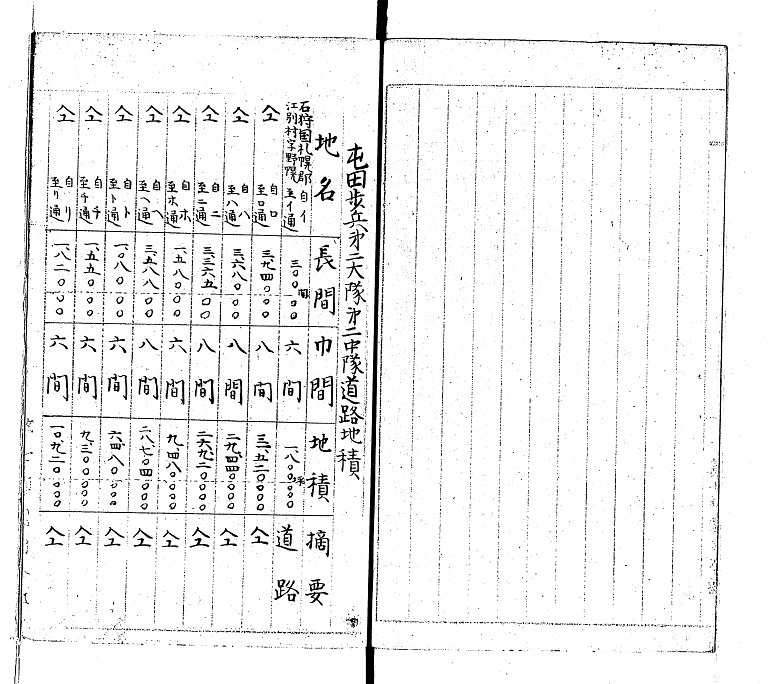 屯田歩兵㐧二大隊㐧二中隊道路地積
地名 長間 巾間 地積 摘要
石狩国札幌郡江別村字野幌 自イ至イ通 三〇〇間〇〇 六間 一、八〇〇坪〇〇〇 道路
仝 自ロ至ロ通 三九四〇〇 八間 三、一五二〇〇〇 仝
仝 自ハ至ハ通 三六八〇〇 八間 二、九四四〇〇〇 仝
仝 自ニ至ニ通 三三六五〇 八間 二、六九二〇〇〇 仝
仝 自ホ至ホ通 一五八〇〇 六間 九四八〇〇〇 仝
仝 自ヘ至ヘ通 三五八八〇 八間 二、八七〇四〇〇 仝
仝 自ト至ト通 一〇八〇〇 六間 六四八〇〇〇 仝
仝 自チ至チ通 一五五〇〇 六間 九三〇〇〇〇 仝
仝 自リ至リ通 一八二〇〇 六間 一、〇九二〇〇〇 仝